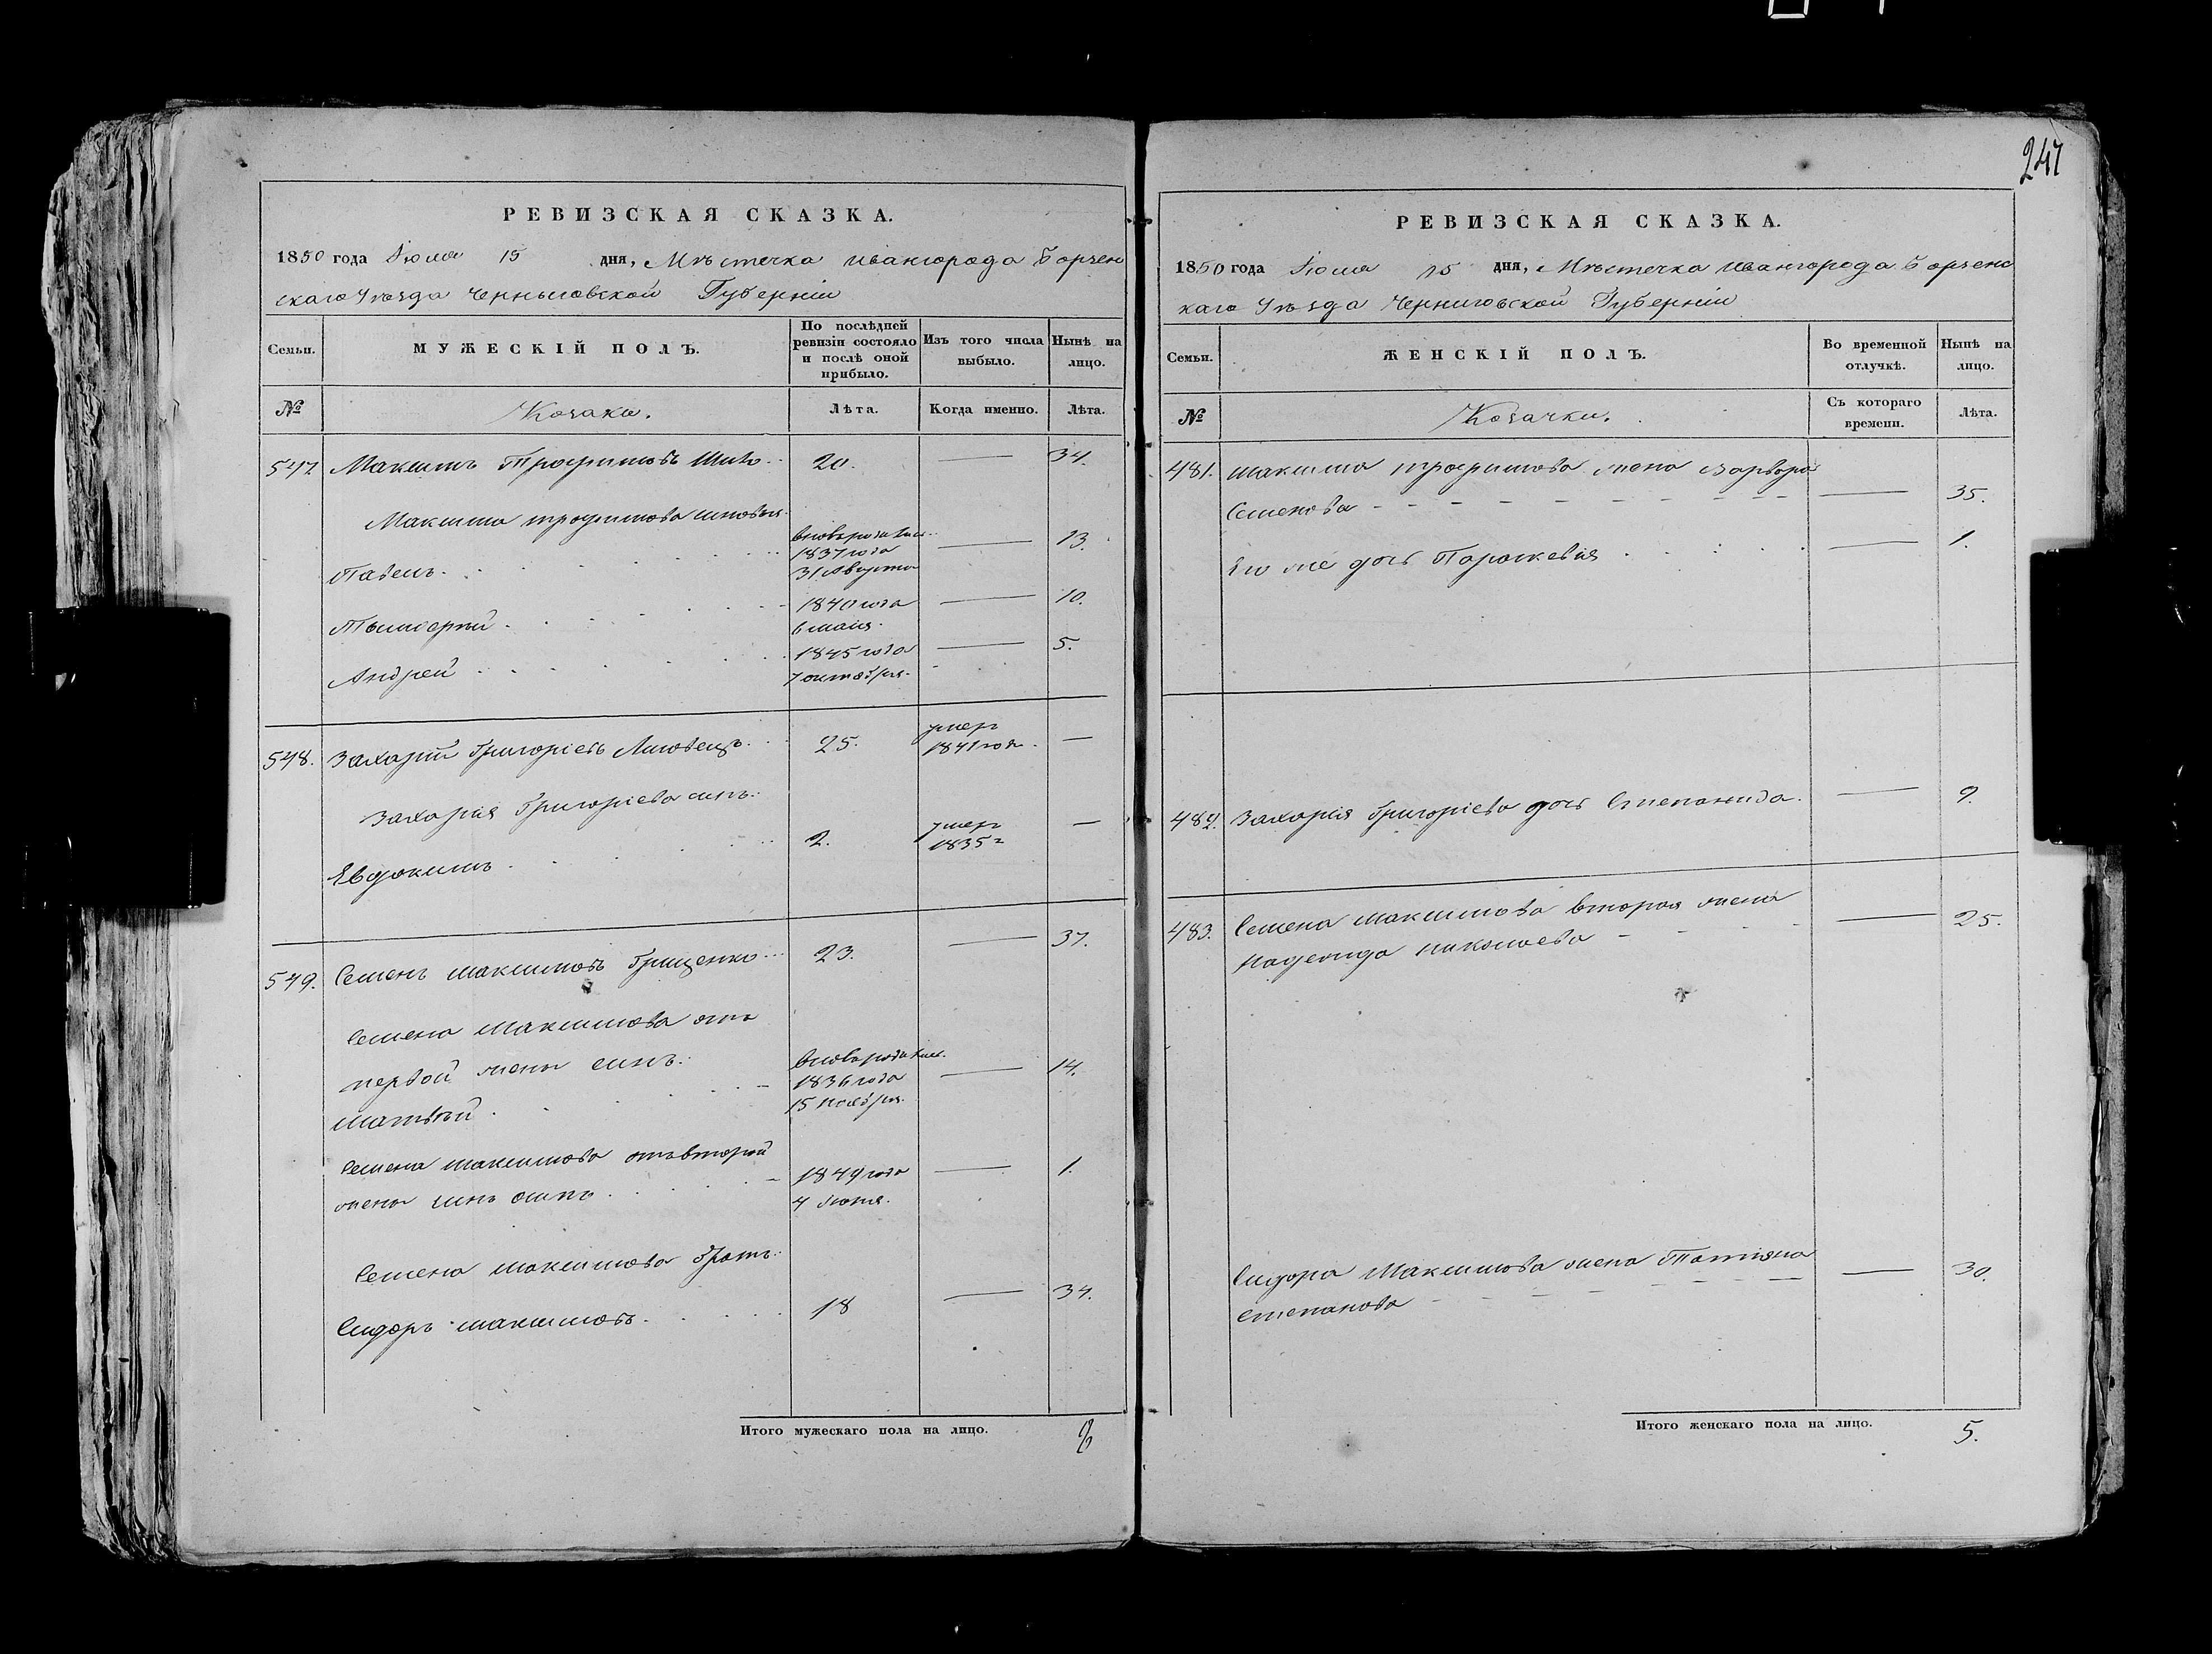 247
РЕВИЗСКАЯ СКАЗКА.
1850 года Іюля 15 дня, Мѣстечка Ивангорода Борзен
скаго Уѣзда Черниговской Губерніи
Семьи.
МУЖЕСКІЙ ПОЛЪ.
По послѣдней ревизіи состояло и послѣ оной прибыло.
Изъ того числа выбыло.
Нынѣ на лицо.
№
Козаки.
Лѣта.
Когда именно.
Лѣта.
547. Максимъ Трофимовъ 20. — 34.
Максима трофимова сыновья
Павелъ вновьрожден. 1837 года 31 Августа — 13.
Тымофтѣй 1840 года 6 маія — 10.
Андрей 1845 года 7 октября — 5.
548. Захарій Григоріевъ Лысовецъ 25. умеръ 1841 года —
Захарія Григоріева сынъ:
Евдокимъ 2. умеръ 1835 г —
549. Семенъ Максимовъ Грищенко 23. — 37.
Семена Максимова отъ
первой жены сынъ:
Матвѣй вновьрожден. 1836 года 15 Ноября — 14.
Семена Максимова отъ второй
жены сынъ Осипъ 1849 года 4 Іюня — 1.
Семена Максимова братъ:
Сидоръ Максимовъ 18 — 34.
Итого мужескаго пола на лицо. 8
РЕВИЗСКАЯ СКАЗКА.
1850 года Іюля 15 дня, Мѣстечка Ивангорода Борзенс
каго Уѣзда Черниговской Губерніи
Семьи.
ЖЕНСКІЙ ПОЛЪ.
Во временной отлучкѣ.
Нынѣ на лицо.
№
Козачки.
Съ котораго времени.
Лѣта.
481. Максима трофимова жена Варвара
Семенова — 35.
Его же дочь Параскевія — 1.
482. Захарія Григоріева дочь Степанида — 9.
483. Семена Максимова вторая жена
Надежда Николаева — 25.
Сидора Максимова жена Татіяна
Степанова — 30.
Итого женскаго пола на лицо. 5.